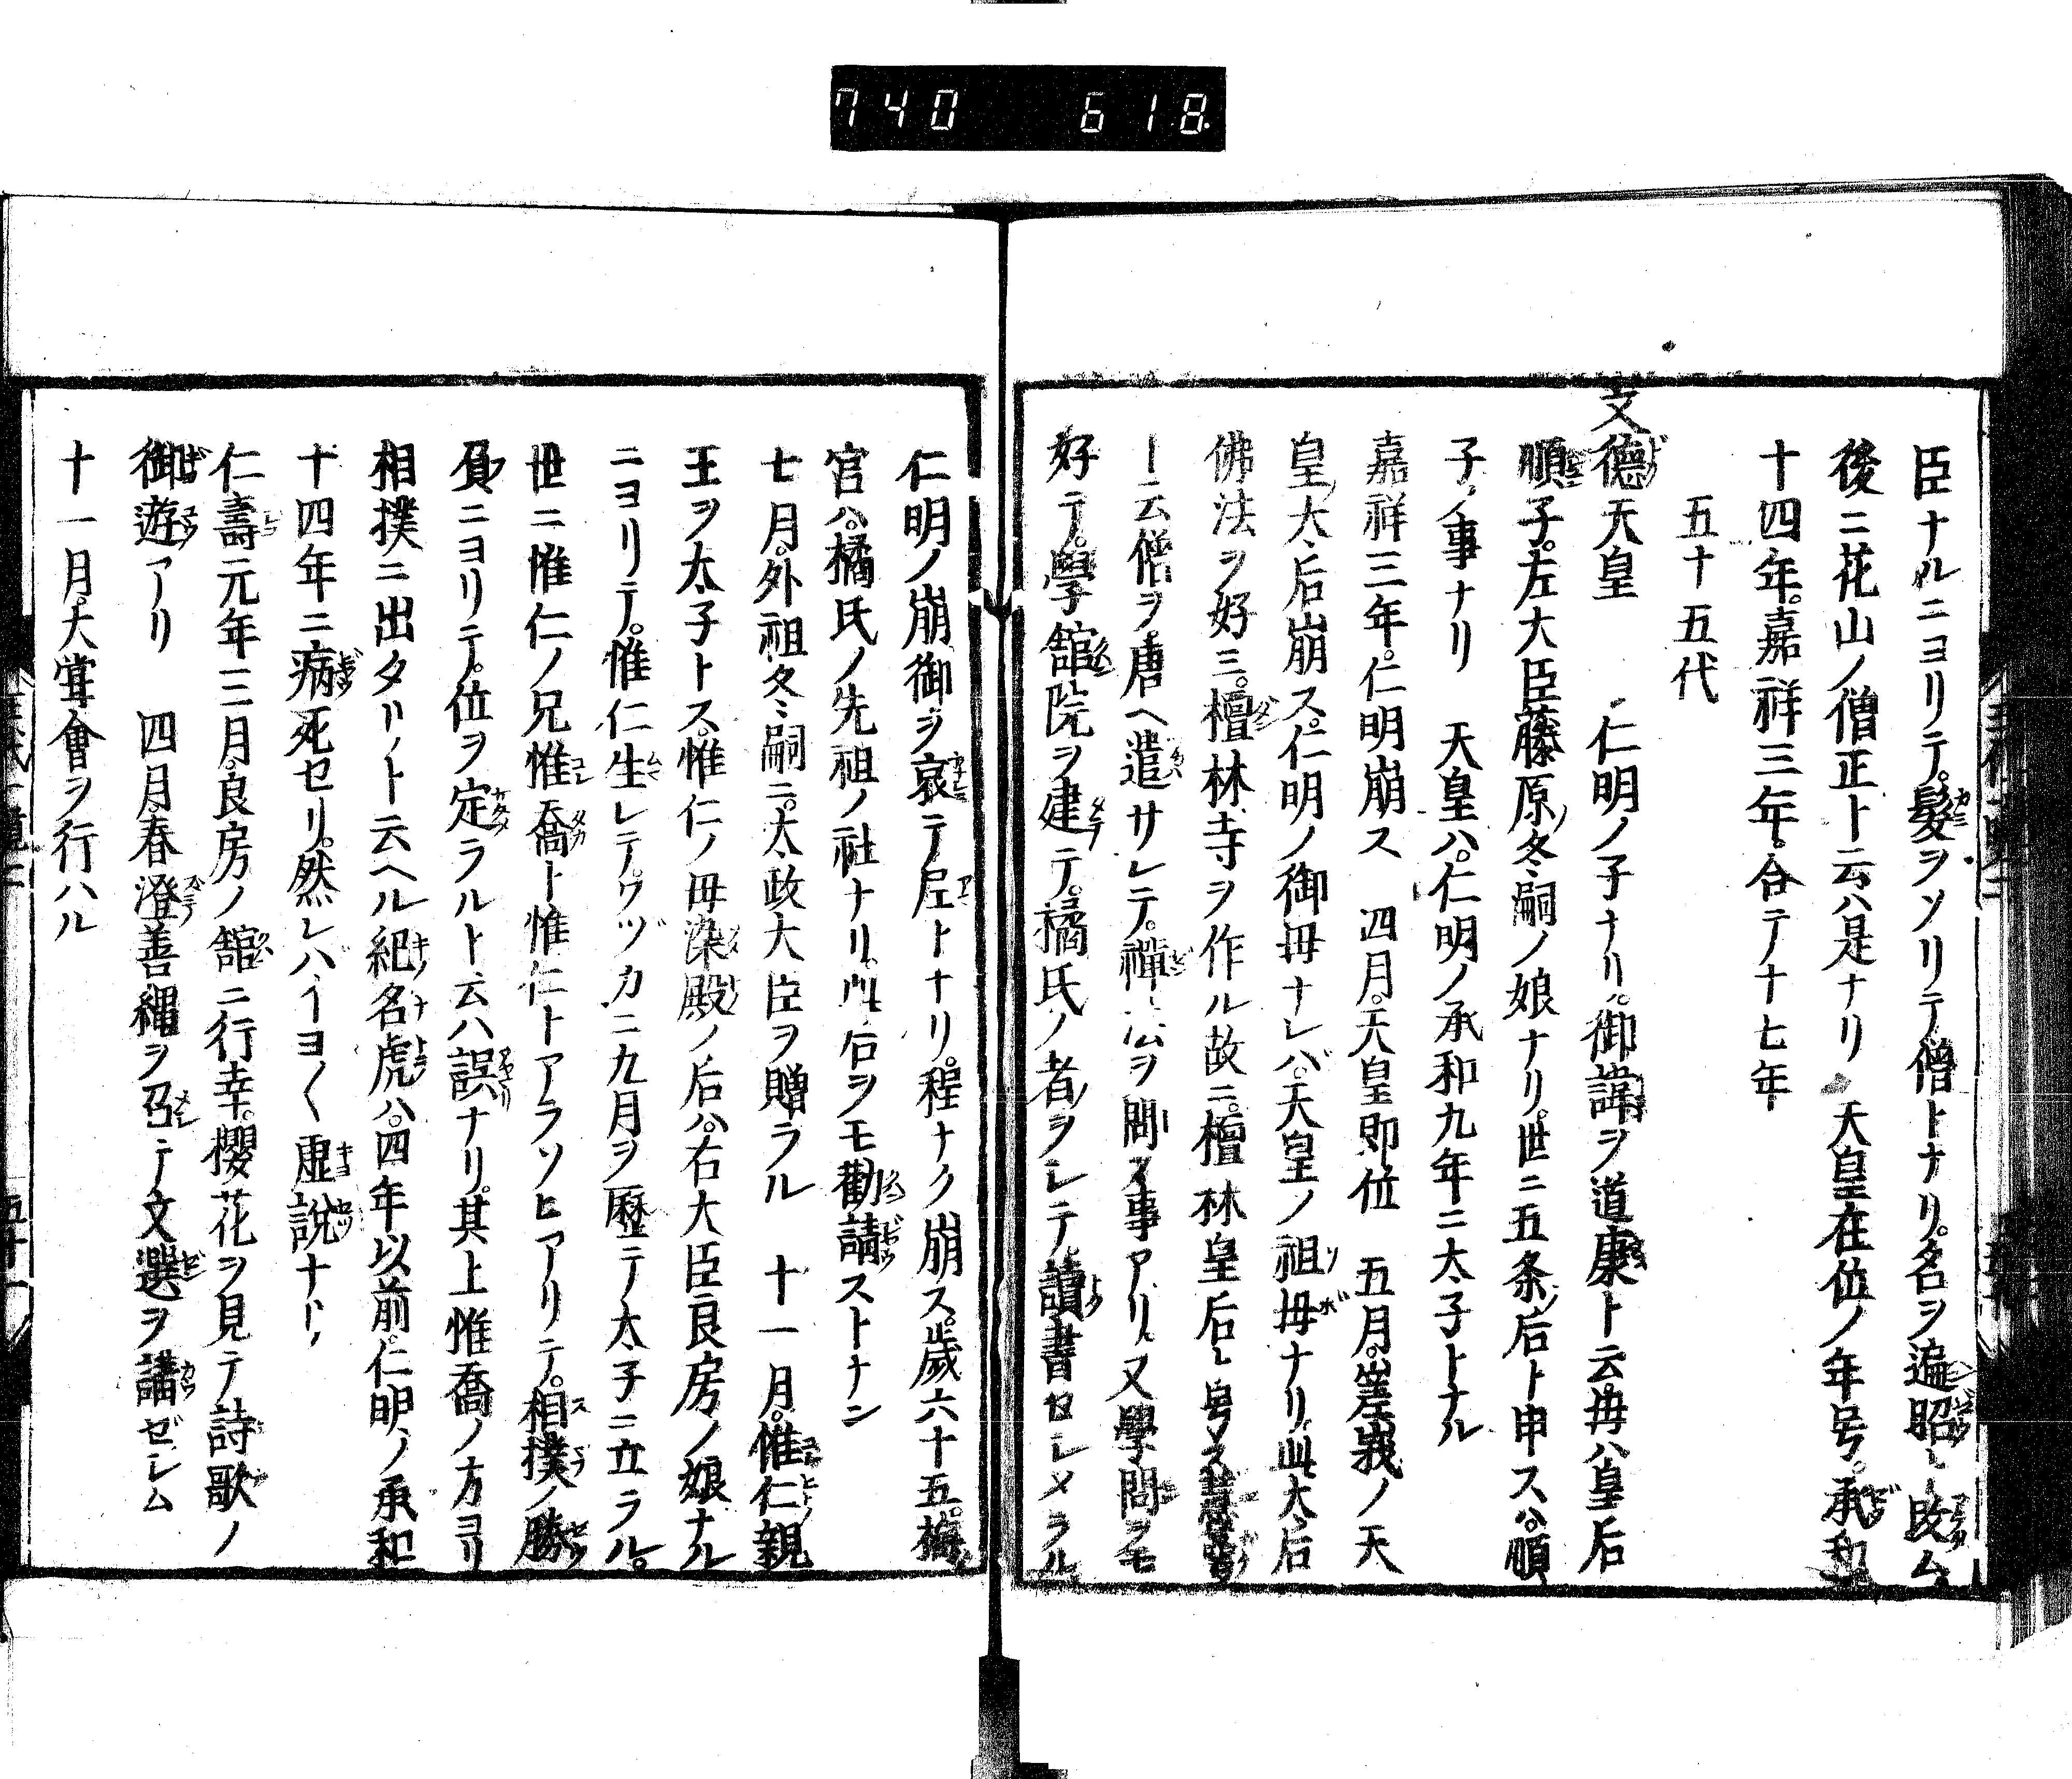 740 618
臣ナルニヨリテ。髮ヲソリテ僧トナリ。名ヲ遍昭ト改ム。
後ニ花山ノ僧正ト云ハ是ナリ 天皇在位ノ年号。承和
十四年。嘉祥三年。合テ十七年
五十五代
文德天皇 仁明ノ子ナリ。御諱ヲ道康ト云。毋ハ皇后
順子。左大臣藤原ノ冬嗣ノ娘ナリ。世ニ五条ノ后ト申スハ。順
子ノ事ナリ 天皇ハ。仁明ノ承和九年ニ太子トナル
嘉祥三年。仁明崩ス 四月。天皇即位 五月。嵯峩ノ天
皇ノ太后崩ス。仁明ノ御毋ナレバ。天皇ノ祖毋ナリ。此太后
佛法ヲ好ミ。檀林寺ヲ作ル故ニ。檀林皇后ト号ス。慧萼
ト云僧ヲ。唐ヘ遣サレテ。禪法ヲ問ス事アリ。又學問ヲモ
好テ。學舘院ヲ建テ。橘氏ノ者ヲシテ讀書セシメラル
仁明ノ崩御ヲ哀テ尼トナリ。程ナク崩ス。歲六十五。梅ノ
官ハ。橘氏ノ先祖ノ社ナリ。此后ヲモ勸請ストナン
七月。外祖冬嗣ニ。太政大臣ヲ贈ラル 十一月。惟仁親
王ヲ太子トス。惟仁ノ毋染殿ノ后ハ。右大臣良房ノ娘ナル
ニヨリテ。惟仁生レテ。ワヅカニ九月ヲ歷テ太子ニ立ラル。
世ニ惟仁ノ兄惟喬ト惟仁トアラソヒアリテ。相撲ノ勝
負ニヨリテ。位ヲ定ラルト云ハ誤ナリ。其上惟喬ノ方ヨリ
相撲ニ出タリト云ヘル紀ノ名虎ハ。四年以前。仁明ノ承和
十四年ニ病死セリ。然レバイヨ〱虛說ナリ
仁壽元年三月。良房ノ舘ニ行幸。櫻花ヲ見テ詩歌ノ
御遊アリ 四月。春澄善繩ヲ召テ文選ヲ講ゼシム
十一月。大嘗會ヲ行ハル